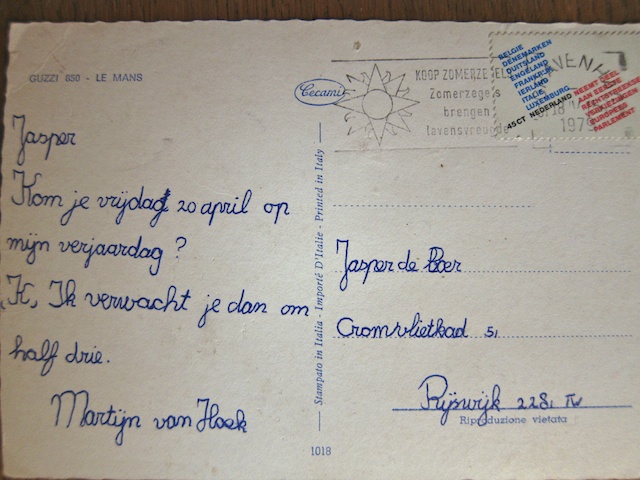 GUZZI 850 - LE MANS
Jasper
Kom je vrijdag 20 april op
mijn verjaardag ?
K, Ik verwacht je dan om
half drie.
Martijn van Hoek
Cecami
Stampato in Italia - Importé D'Italie - Printed in Italy
1018
KOOP ZOMERZE ELS
Zomerzegels
brengen
levensvreugde
1979
BELGIE
DENEMARKEN
DUITSLAND
ENGELAND
FRANKRIJK
IERLAND
ITALIE
LUXEMBURG
45CT NEDERLAND
NEEMT DEEL
AAN EERSTE
RECHTSTREEKSE
VERKIEZINGEN
EUROPEES
PARLEMENT
Jasper de Boer
Cromvlietkad 51
Rijswijk 2281 TW
Riproduzione vietata